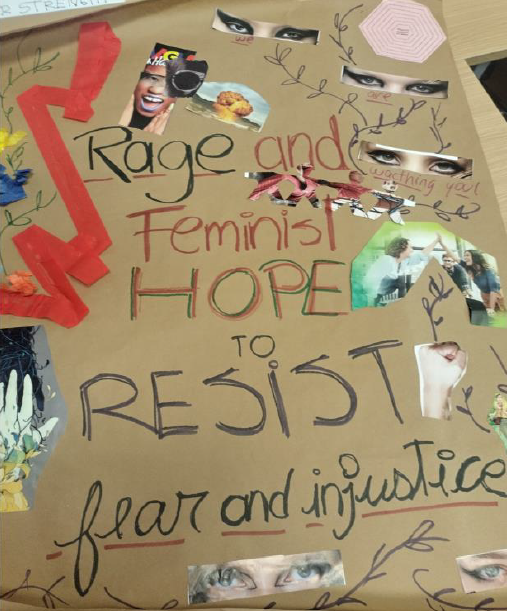 R STRENGTH
we
are
Rage and
watching you!
Feminist
HOPE
TO
RESiST
fear and injustice